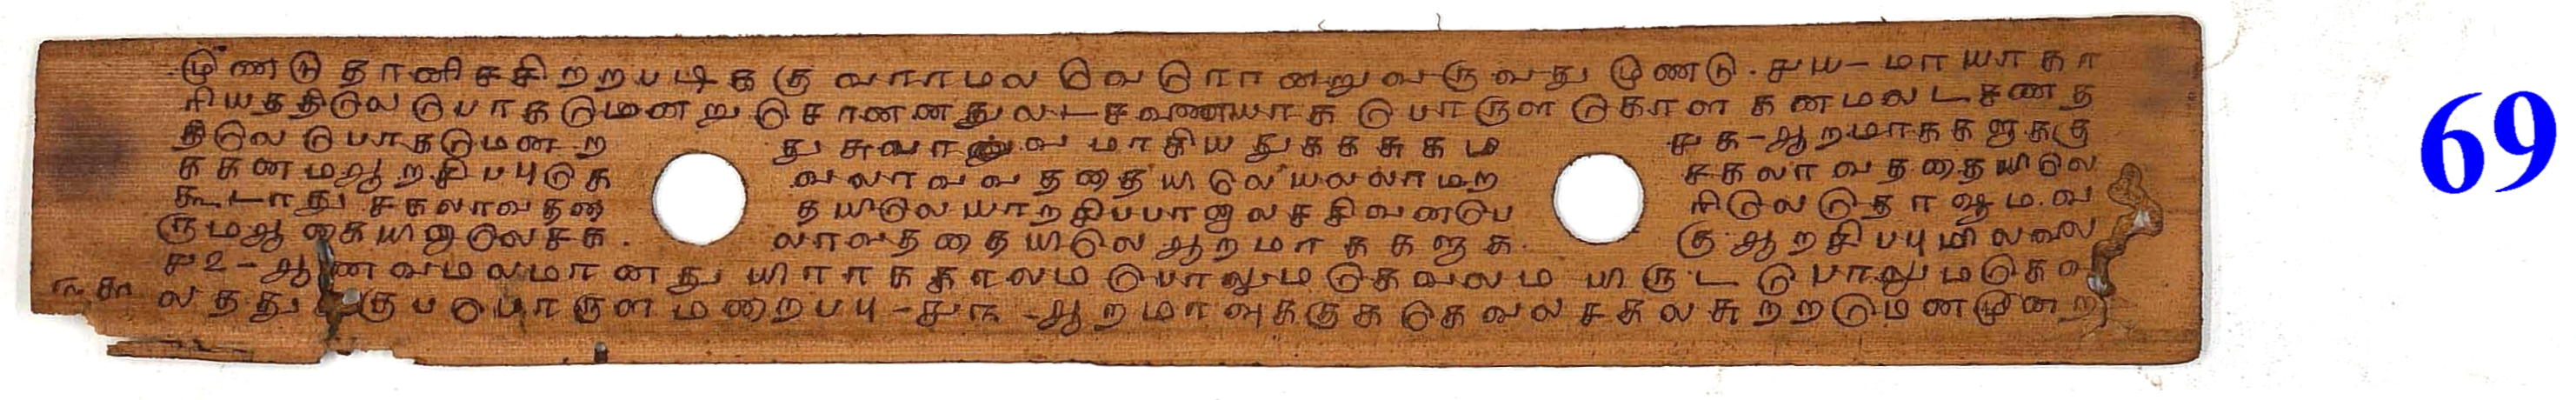 மூணடு தானிசசிறறபடிககு வாராமல வெறொனறுவருவது மூணடு. சுய- மாயாகா
ரியததிலெ பொகமெனறு சொனனது லடசணையாக பொருள கொள கனமலடசணத
திலெ பொகமென ற து சுவாலுவ மாகிய துககசுகம சுக-ஆறமாககளுககு
ககனமஆறசிபபுகெ வலாவவததையிலெயலலாமற சகலாவததையிலெ
கூடாது சகலாவதத தயிலெயாறசிபபானாலசசிவனபெ ரிலெதொஷம.வ
ருமஆகையினாலெசக லாவததையிலெ ஆறமாககளுக கு ஆறசிபபுமிலலை
சு௨-ஆணவமலமானது யிராககாலம பொலும கெவலம யிருட பொலுமகெவ
லதது குபபொருள மறைபபு-சு௩-ஆறமாவுககுக கெவல சகல சுறறமெனமூனறு
69